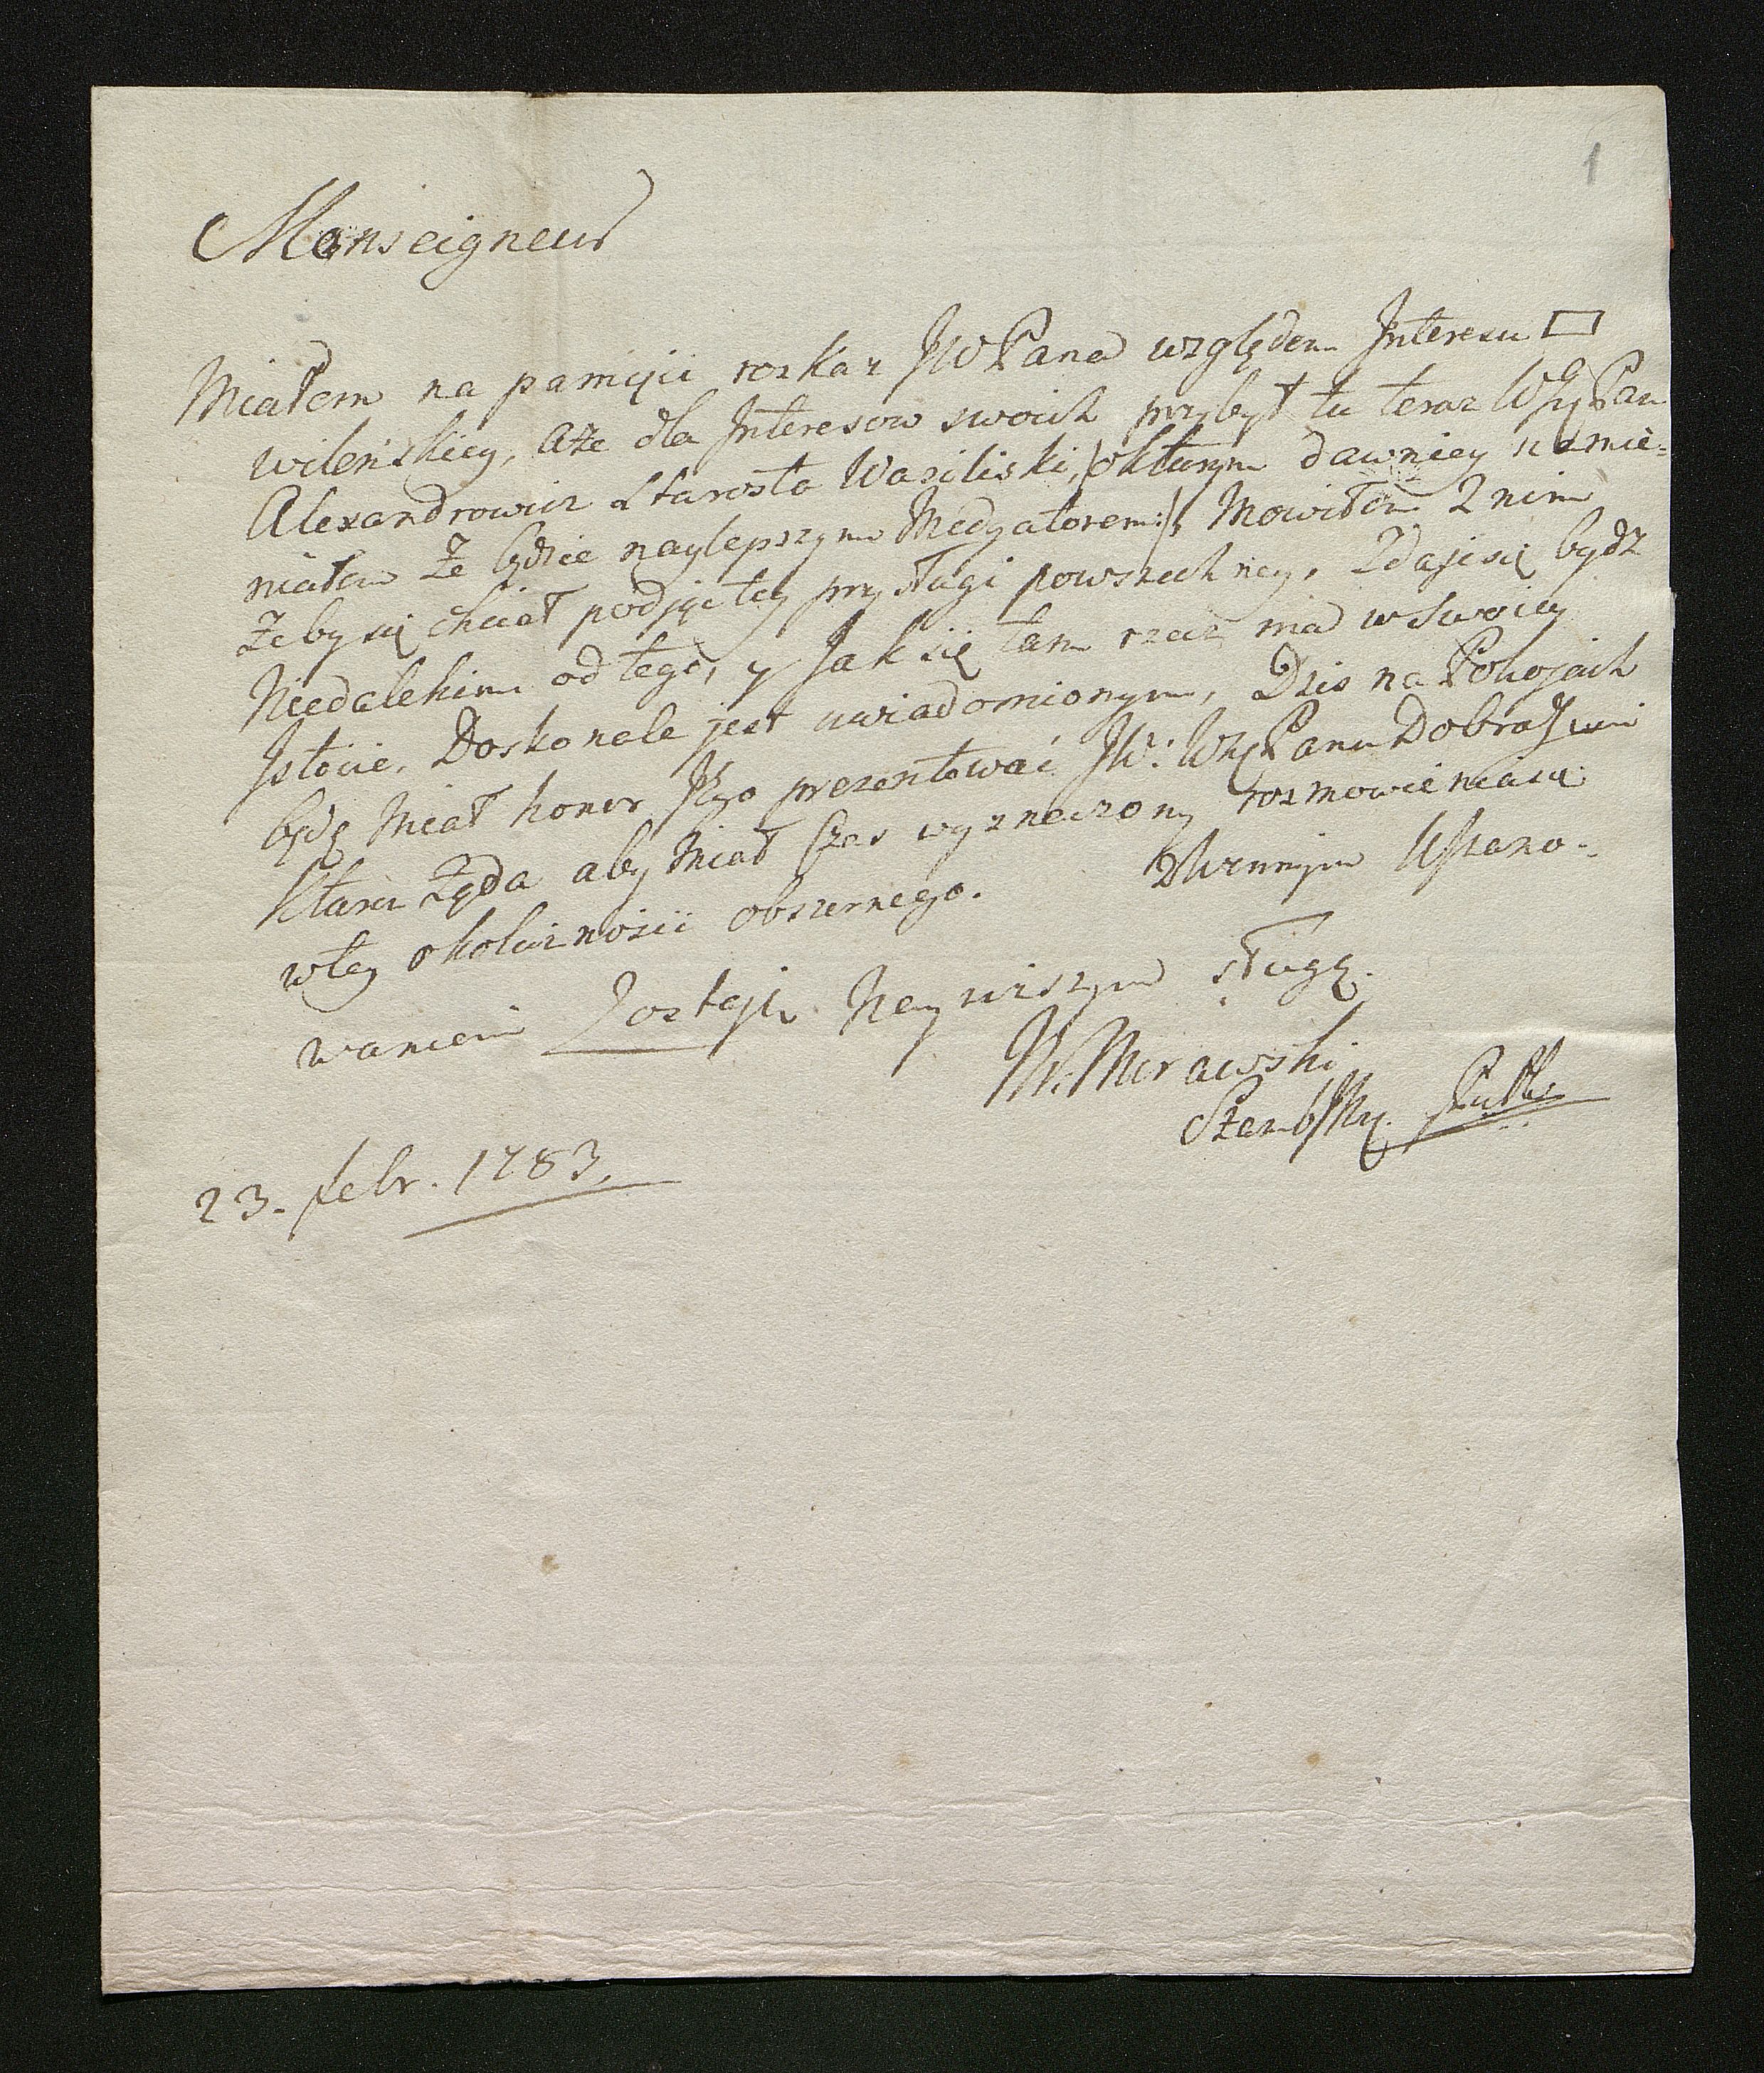 1
Monseigneur
Miałem na pamięci roskaz JW Pana względem Interesu □
wileńskiey, aże dla Interesow swoich przybył tu teraz Pan
Alexandrowicz Starosta Wasiliski, /okturym dawniey namie=
niałem że będzie naylepszym Medyatorem:/ Mowiłem z nim
żeby się chciał podjąc tey przysługi powszechney, Zdajesię bydz
Niedalekim od tego, y Jak się tam rzecz ma w Swoiey
Jstocie, Doskonale jest uwiadomionym, Dzis na Pokojach
będę Miał honor Jego prezentować JW: Panu Dobrodzieiowi
Ktury żąda aby Miał Czas wyznaczony rozmowienia się
wtey okoliczności obszernego. Uszano=
waniem Zostaję Nayniższym sługą.
Murawski
23. febr. 1783.